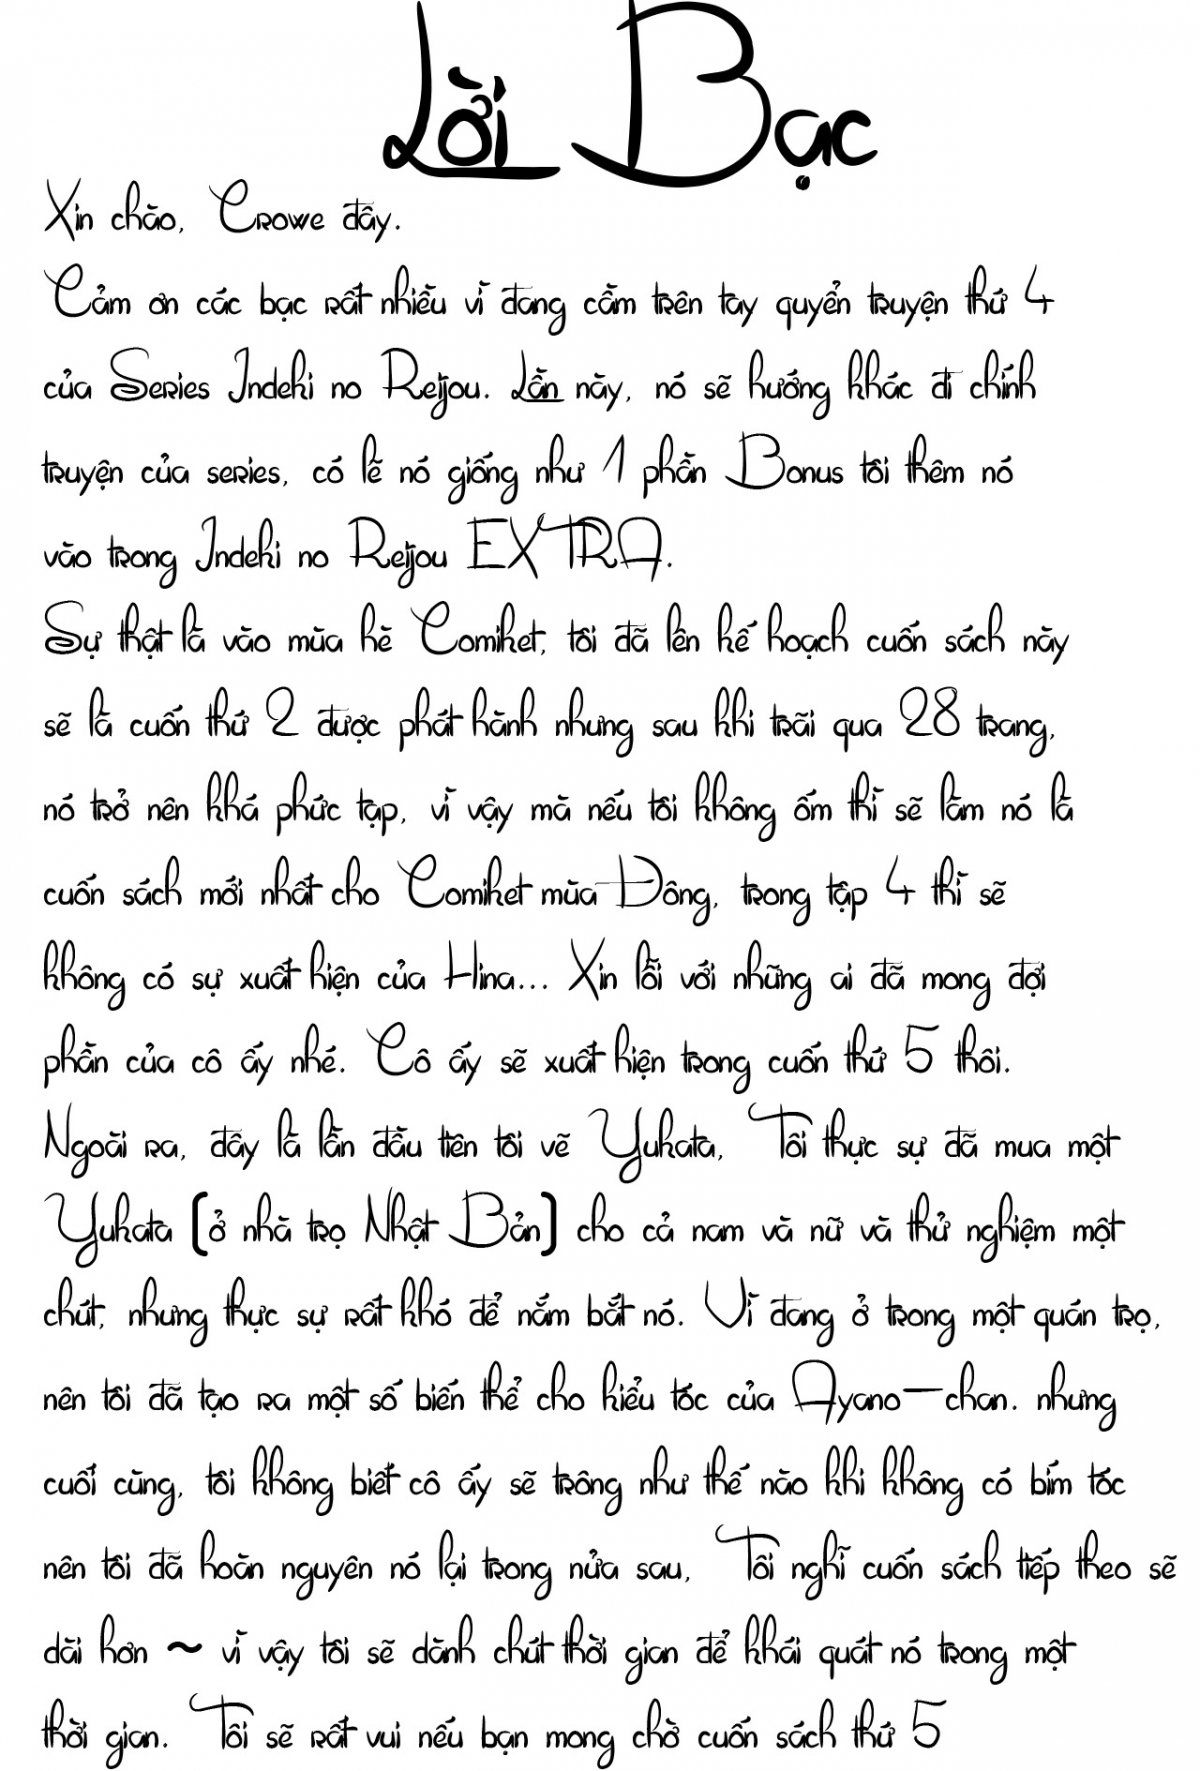 Lời Bạc
Xin chào, Crowe đây.
Cảm ơn các bạc rất nhiều vì đang cầm trên tay quyển truyện thứ 4
của Series Indeki no Reijou. Lần này, nó sẽ hướng khác đi chính
truyện của series, có lẽ nó giống như 1 phần Bonus tôi thêm nó
vào trong Indeki no Reijou EXTRA.
Sự thật là vào mùa hè Comiket, tôi đã lên kế hoạch cuốn sách này
sẽ là cuốn thứ 2 được phát hành nhưng sau khi trãi qua 28 trang,
nó trở nên khá phức tạp, vì vậy mà nếu tôi không ốm thì sẽ làm nó là
cuốn sách mới nhất cho Comiket mùa Đông, trong tập 4 thì sẽ
không có sự xuất hiện của Hina... Xin lỗi với những ai đã mong đợi
phần của cô ấy nhé. Cô ấy sẽ xuất hiện trong cuốn thứ 5 thôi.
Ngoài ra, đây là lần đầu tiên tôi vẽ Yukata, Tôi thực sự đã mua một
Yukata (ở nhà trọ Nhật Bản) cho cả nam và nữ và thử nghiệm một
chút, nhưng thực sự rất khó để nắm bắt nó. Vì đang ở trong một quán trọ,
nên tôi đã tạo ra một số biến thể cho kiểu tóc của Ayano-chan. nhưng
cuối cùng, tôi không biết cô ấy sẽ trông như thế nào khi không có bím tóc
nên tôi đã hoàn nguyên nó lại trong nửa sau, Tôi nghĩ cuốn sách tiếp theo sẽ
dài hơn ~ vì vậy tôi sẽ dành chút thời gian để khái quát nó trong một
thời gian. Tôi sẽ rất vui nếu bạn mong chờ cuốn sách thứ 5